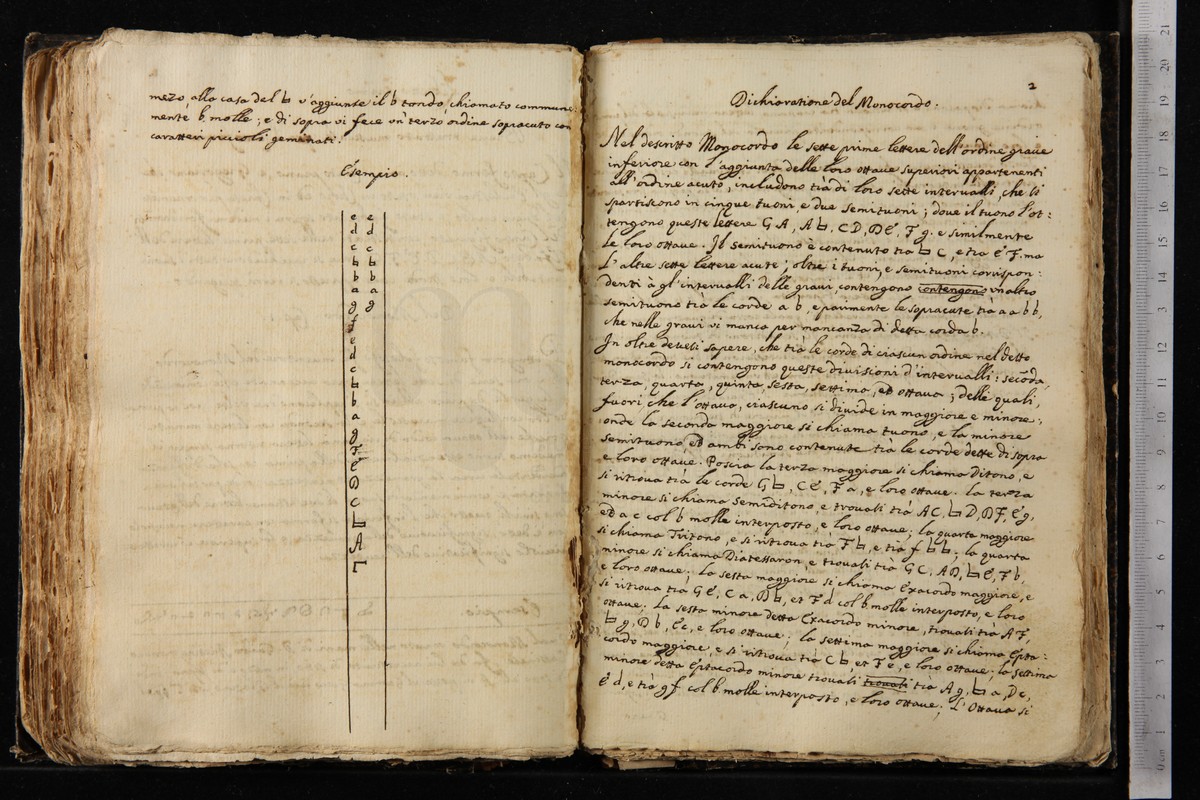 mezo, alla casa del ♮ v'aggiunse il b tondo, chiamato commune:
mente b molle; e di sopra vi fece un terzo ordine sopracuto con
caratteri piccioli geminati.
Esempio.
e e
d d
c c
♮ ♮
b b
a a
g g
f
e
d
c
♮
b
a
g
F
E
D
C
♮
A
Γ
2
Dichiaratione del Monocordo.
Nel descritto Monocordo le sette prime lettere dell'ordine graue
inferiore con l'aggiunta delle loro ottaue superiori appartenenti
all'ordine acuto, includono trà di loro sette interualli, che si
spartiscono in cinque tuoni e due semituoni; doue il tuono l'ot:
tengono queste lettere G A, A ♮, C D, D E, F g. e similmente
le loro ottaue. Il semituono è contenuto trà ♮ C, e trà E F. ma
l'altre sette lettere acute; oltre i tuoni, e semituoni corrispon:
denti à gl'interualli delle graui, contengono contengono vn altro
semituono trà le corde a b, e parimente le sopracute trà a a b b,
che nelle graui vi manca per mancanza di detta corda b.
In oltre deuesi sapere, che trà le corde di ciascun ordine nel detto
monocordo si contengono queste diuisioni d'interualli: secõda,
terza, quarta, quinta, sesta, settima, ed ottaua; delle quali,
fuori che l'ottaua, ciascuno si diuide in maggiore e minore:
onde la seconda maggiore si chiama tuono, e la minore
semituono, ed ambi sono contenute trà le corde dette di sopra
e loro ottaue. Poscia la terza maggiore si chiama Ditono, e
si ritroua trà le corde G ♮, C E, F a, e loro ottaue. la terza
minore si chiama Semiditono, e trouasi trà A C, ♮ D, D F, E g,
ed a c col b molle interposto, e loro ottaue; la quarta maggiore
si chiama Tritono, e si ritroua trà F ♮, e trà f ♮ ♮; la quarta
minore si chiama Diatessaron, e trouasi trà G C, A D, ♮ E, F b,
e loro ottaue; la sesta maggiore si chiama Exacordo maggiore, e
si ritroua trà G E, C a, D ♮, et F d col b molle interposto, e loro
ottaue; la sesta minore detta Exacordo minore, trouasi trà A F,
♮ g, D b, E c, e loro ottaue; la settima maggiore si chiama Epta:
cordo maggiore, e si ritroua trà C ♮, et F e, e loro ottaue; la settima
minore detta Eptacordo minore trouasi trouasi trà A g, ♮ a, D c,
E d, e trà g f col b molle interposto, e loro ottaue; L'Ottaua si